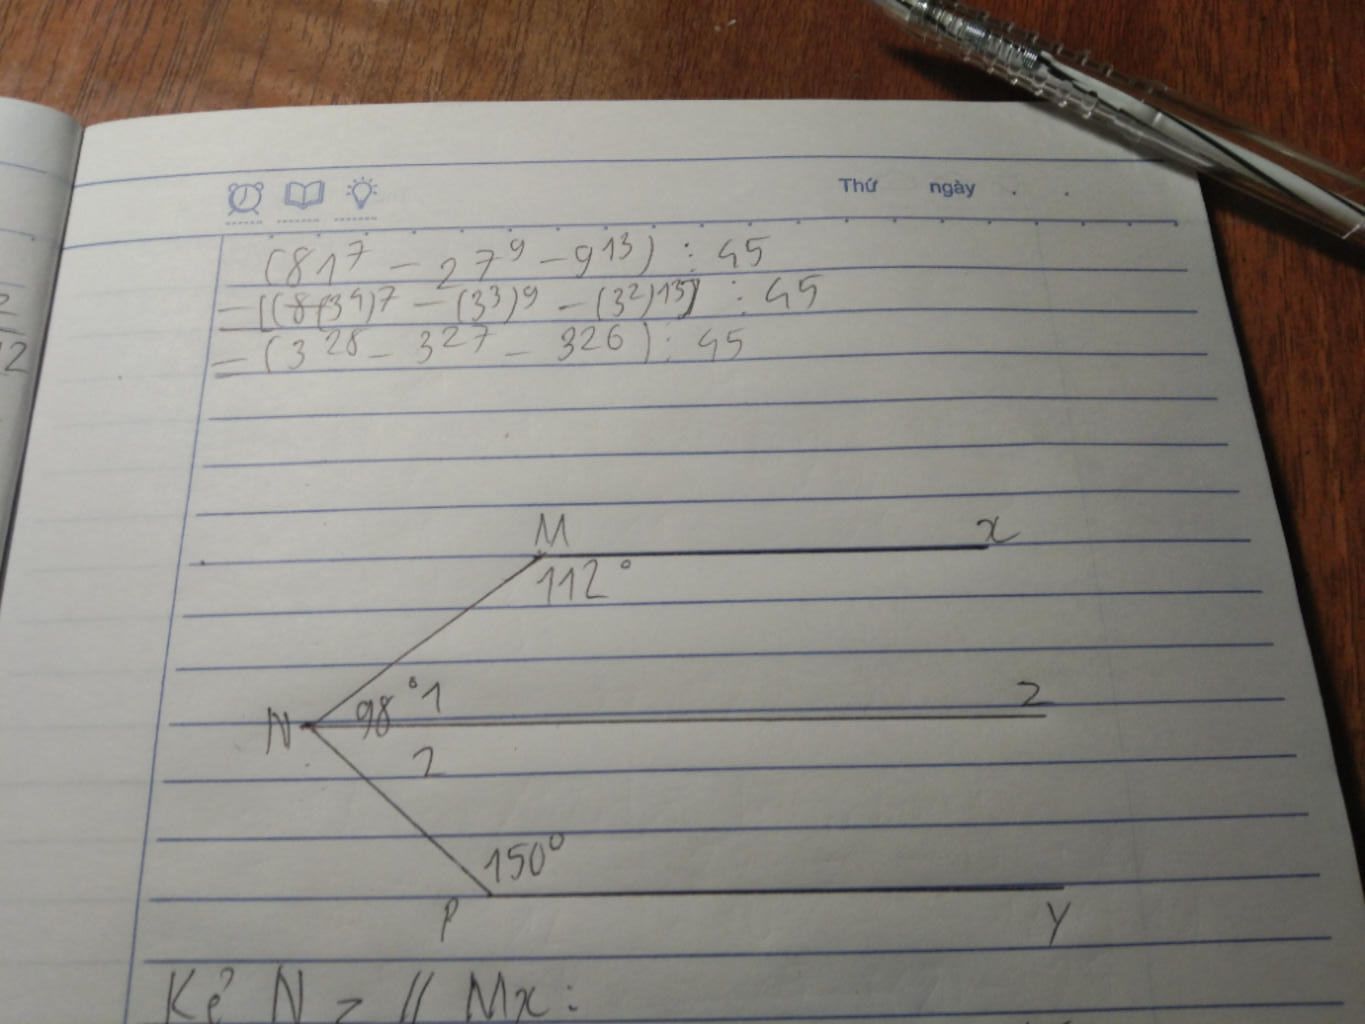 Thứ ngày . .
(81^7 - 27^9 - 9^13) : 45
= [(3^4)^7 - (3^3)^9 - (3^2)^13] : 45
= (3^28 - 3^27 - 3^26) : 45
M x
112°
98° 1
N z
2
150°
P y
Kẻ Nz // Mx :